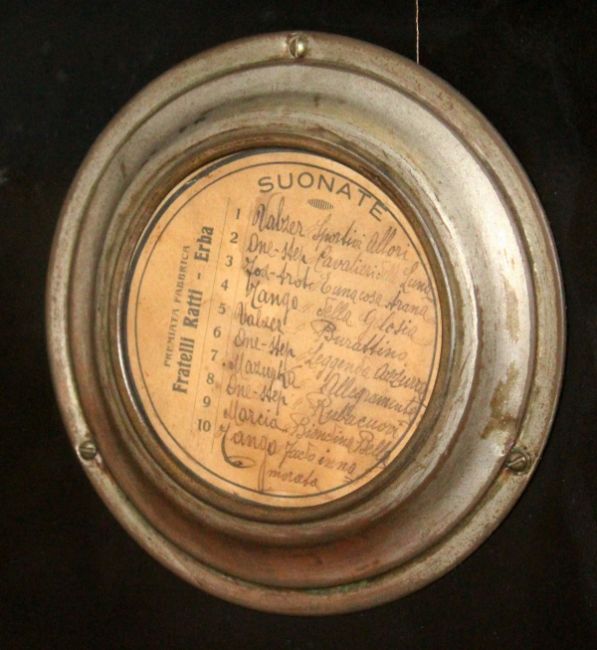 SUONATE
PREMIATA FABBRICA
Fratelli Ratti - Erba
1 Valzer Sportivi Allori
2 One-step Cavalieri Luna
3 Fox-trot È una cosa strana
4 Tango Folla Gelosia
5 Valzer Burattino
6 One-step Leggenda azzurra
7 Mazurka Allegramente
8 One-step Rubacuori
9 Marcia Biondine Belle
10 Tango
morata